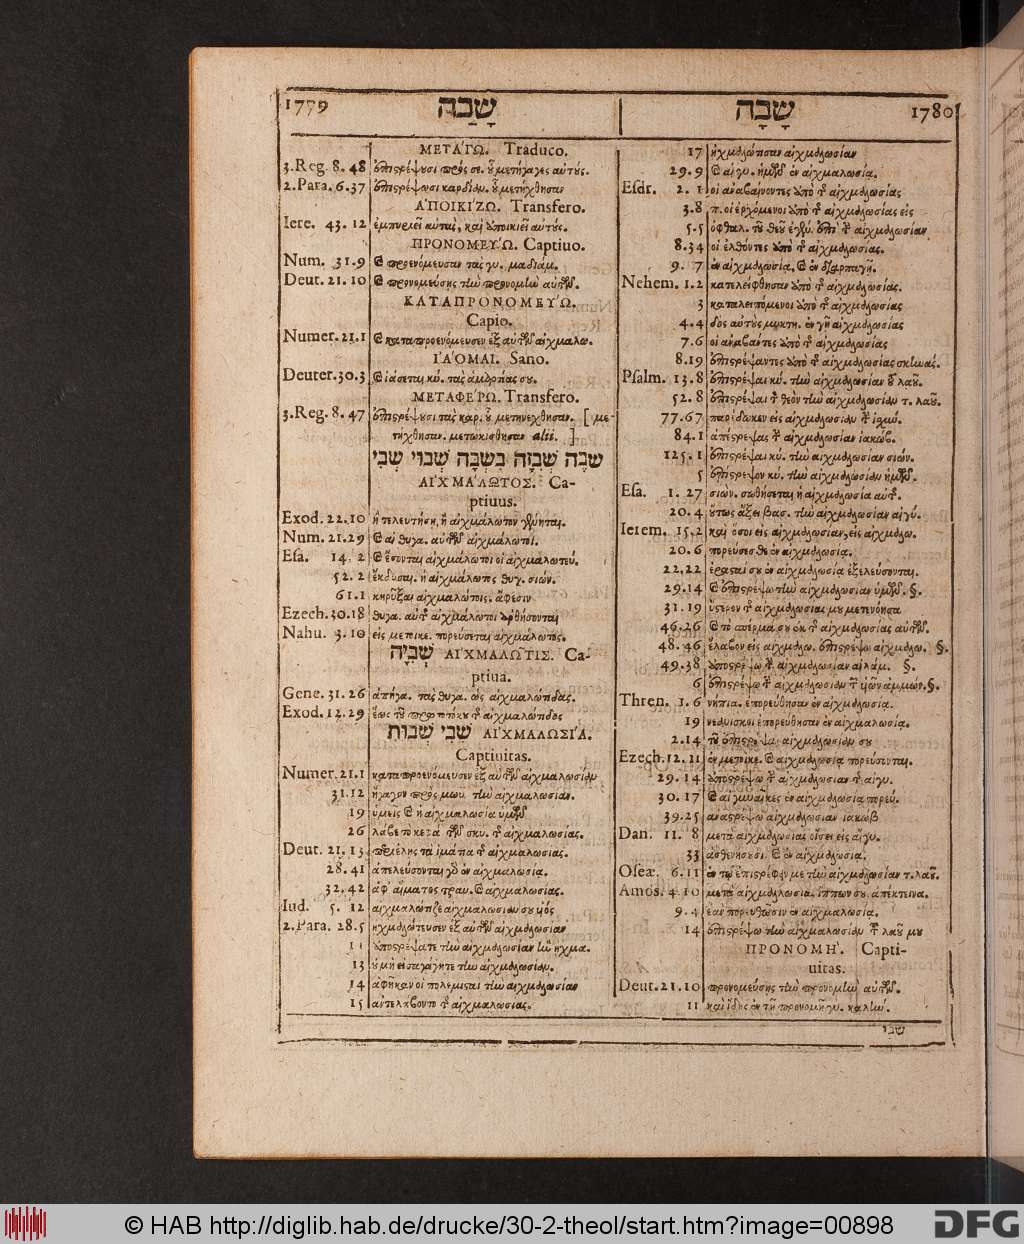 1779 שָׁבָה
ΜΕΤΑΓΩ. Traduco.
3. Reg. 8. 48 ἐπιστρέψουσι πρός σε. οὗ μετήγαγες αὐτούς.
2. Para. 6. 37 ἐπιστρέψωσι καρδίαν. οὗ μετήχθησαν
ΑΠΟΙΚΙΖΩ. Transfero.
Iere. 43. 12 ἐμπυριεῖ αὐτὰς, καὶ ἀποικιεῖ αὐτούς.
ΠΡΟΝΟΜΕΥΩ. Captiuo.
Num. 31. 9 καὶ προενόμευσαν τὰς γυ. μαδιάμ.
Deut. 21. 10 καὶ προνομεύσῃς τὴν προνομὴν αὐτῶν.
ΚΑΤΑΠΡΟΝΟΜΕΥΩ.
Capio.
Numer. 21. 1 καὶ καταπροενόμευσεν ἐξ αὐτῶν αἰχμαλω.
ΙΑΟΜΑΙ. Sano.
Deuter. 30. 3 καὶ ἰάσεται κύ. τὰς ἁμαρτίας σου.
ΜΕΤΑΦΕΡΩ. Transfero.
3. Reg. 8. 47 ἐπιστρέψουσι τὰς καρ. οὗ μετηνέχθησαν. [με-
τήχθησαν. μετωκίσθησαν alii. ]
שבי
ΑΙΧΜΑΛΩΤΟΣ. Ca-
ptiuus.
Exod. 22. 10 ἢ τελευτήσῃ, ἢ αἰχμάλωτον γένηται.
Num. 21. 29 καὶ αἱ θυγα. αὐτῶν αἰχμάλωτοι.
Esa. 14. 2 καὶ ἔσονται αἰχμάλωτοι οἱ αἰχμαλωτεύ.
52. 2 ἔκδυσαι. ἡ αἰχμάλωτος θυγ. σιών.
61. 1 κηρῦξαι αἰχμαλώτοις. ἄφεσιν
Ezech. 30. 18 θυγα. αὐτῆς αἰχμάλωτοι ἀχθήσονται
Nahu. 3. 10 εἰς μετοικε. πορεύσεται αἰχμάλωτος.
שִׁבְיָה ΑΙΧΜΑΛΩΤΙΣ. Ca-
ptiua.
Gene. 31. 26 ἀπήγα. τὰς θυγα. ὡς αἰχμαλώτιδας.
Exod. 12. 29 ἕως τοῦ πρωτοτόκου τῆς αἰχμαλώτιδος
שְׁבִי שְׁבוּת ΑΙΧΜΑΛΩΣΙΑ.
Captiuitas.
Numer. 21. 1 καταπροενόμευσεν ἐξ αὐτῶν αἰχμαλωσίαν
31. 12 ἤγαγον πρὸς μωυ. τὴν αἰχμαλωσίαν.
19 ὑμεῖς καὶ ἡ αἰχμαλωσία ὑμῶν
26 λάβε τὸ κεφά. τῶν σκύ. τῆς αἰχμαλωσίας.
Deut. 21. 13 περιέλῃς τὰ ἱμάτια τῆς αἰχμαλωσίας.
28. 41 ἀπελεύσονται γὰρ ἐν αἰχμαλωσίᾳ.
32. 42 ἀφ' αἵματος τραυ. καὶ αἰχμαλωσίας.
Iud. 5. 12 αἰχμαλώτιζε αἰχμαλωσίαν σου υἱὸς
2. Para. 28. 5 ᾐχμαλώτευσεν ἐξ αὐτῶν αἰχμαλωσίαν
11 ἀποστρέψατε τὴν αἰχμαλωσίαν ἣν ᾐχμα.
13 οὐ μὴ εἰσαγάγητε τὴν αἰχμαλωσίαν.
14 ἀφῆκαν οἱ πολεμισταὶ τὴν αἰχμαλωσίαν
15 ἀντελάβοντο τῆς αἰχμαλωσίας.
שָׁבָה 1780
17 ᾐχμαλώτισαν αἰχμαλωσίαν
29. 9 καὶ αἱ γυ. ἡμῶν ἐν αἰχμαλωσίᾳ.
Esdr. 2. 1 οἱ ἀναβαίνοντες ἀπὸ τῆς αἰχμαλωσίας
3. 8 π. οἱ ἐρχόμενοι ἀπὸ τῆς αἰχμαλωσίας εἰς
5. 5 ὀφθαλ. τοῦ θεοῦ ἐγένε. ἐπὶ τὴν αἰχμαλωσίαν
8. 34 οἱ ἐλθόντες ἀπὸ τῆς αἰχμαλωσίας.
9. 7 ἐν αἰχμαλωσίᾳ, καὶ ἐν διαρπαγῇ.
Nehem. 1. 2 κατελείφθησαν ἀπὸ τῆς αἰχμαλωσίας.
3 καταλειπόμενοι ἀπὸ τῆς αἰχμαλωσίας
4. 4 δὸς αὐτοὺς μυκτη. ἐν γῇ αἰχμαλωσίας
7. 6 οἱ ἀναβάντες ἀπὸ τῆς αἰχμαλωσίας
8. 19 ἐπιστρέψαντες ἀπὸ τῆς αἰχμαλωσίας σκηνάς.
Psalm. 13. 8 ἐπιστρέψαι κύ. τὴν αἰχμαλωσίαν τοῦ λαοῦ.
52. 8 ἐπιστρέψαι τὸν θεὸν τὴν αἰχμαλωσίαν τ. λαοῦ.
77. 67 παρέδωκεν εἰς αἰχμαλωσίαν τὴν ἰσχύ.
84. 1 ἀπέστρεψας τὴν αἰχμαλωσίαν ἰακώβ.
125. 1 ἐπιστρέψαι κύ. τὴν αἰχμαλωσίαν σιών.
5 ἐπίστρεψον κύ. τὴν αἰχμαλωσίαν ἡμῶν.
Esa. 1. 27 σιών. σωθήσεται ἡ αἰχμαλωσία αὐτῆς.
20. 4 οὕτως ἄξει βασ. τὴν αἰχμαλωσίαν αἰγύ.
Ierem. 15. 2 καὶ ὅσοι εἰς αἰχμαλωσίαν, εἰς αἰχμαλω.
20. 6 πορεύσεσθε ἐν αἰχμαλωσίᾳ.
22. 22 ἐρασταί σου ἐν αἰχμαλωσίᾳ ἐξελεύσονται.
29. 14 καὶ ἐπιστρέψω τὴν αἰχμαλωσίαν ὑμῶν. §.
31. 19 ὕστερον τῆς αἰχμαλωσίας μου μετενόησα
46. 26 καὶ τὸ σπέρμα σου ἐκ τῆς αἰχμαλωσίας αὐτῶν.
48. 46 ἔλαβον εἰς αἰχμαλω. ἐπιστρέψω αἰχμαλω. §.
49. 38 ἀποστρέψω τὴν αἰχμαλωσίαν αἰλάμ. §.
6 ἐπιστρέψω τὴν αἰχμαλωσίαν τῶν υἱῶν ἀμμών. §.
Thren. 1. 6 νήπια. ἐπορεύθησαν ἐν αἰχμαλωσίᾳ.
19 νεανίσκοι ἐπορεύθησαν ἐν αἰχμαλωσίᾳ.
2. 14 τοῦ ἐπιστρέψαι αἰχμαλωσίαν σου
Ezech. 12. 11 ἐν μετοικε. καὶ αἰχμαλωσίᾳ πορεύσονται.
29. 14 ἀποστρέψω τὴν αἰχμαλωσίαν τῆς αἰγυ.
30. 17 καὶ αἱ γυναῖκες ἐν αἰχμαλωσίᾳ πορεύ.
39. 25 ἀναστρέψω αἰχμαλωσίαν ἰακώβ
Dan. 11. 8 μετὰ αἰχμαλωσίας οἴσει εἰς αἴγυ.
33 ἀσθενήσουσι. καὶ ἐν αἰχμαλωσίᾳ.
Oseæ. 6. 11 ἐν τῷ ἐπιστρέφειν με τὴν αἰχμαλωσίαν τ. λαοῦ.
Amos. 4. 10 μετὰ αἰχμαλωσίας ἵππων σου. ἀπέκτεινα.
9. 4 ἐὰν πορευθῶσιν ἐν αἰχμαλωσίᾳ.
14 ἐπιστρέψω τὴν αἰχμαλωσίαν τοῦ λαοῦ μου
ΠΡΟΝΟΜΗ. Capti-
uitas.
Deut. 21. 10 προνομεύσῃς τὴν προνομὴν αὐτῶν.
11 καὶ ἴδῃς ἐν τῇ προνομῇ γυ. καλήν.
שבי
© HAB http://diglib.hab.de/drucke/30-2-theol/start.htm?image=00898
DFG